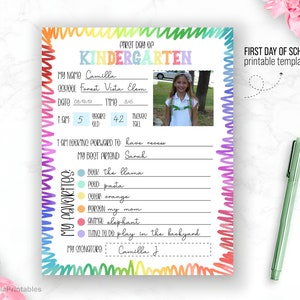 FIRST DAY OF
KINDERGARTEN
MY NAME Camilla
SCHOOL Forest Vista Elem
DATE TIME
I AM 5 YEARS OLD 42 INCHES TALL
I AM LOOKING FORWARD TO have recess
MY BEST FRIEND Sarah
MY FAVORITES:
BOOK the llama
FOOD pasta
COLOR orange
PERSON my mom
ANIMAL elephant
THING TO DO play in the backyard
MY SIGNATURE Camilla J.
FIRST DAY OF SCH
printable templa
aPrintables